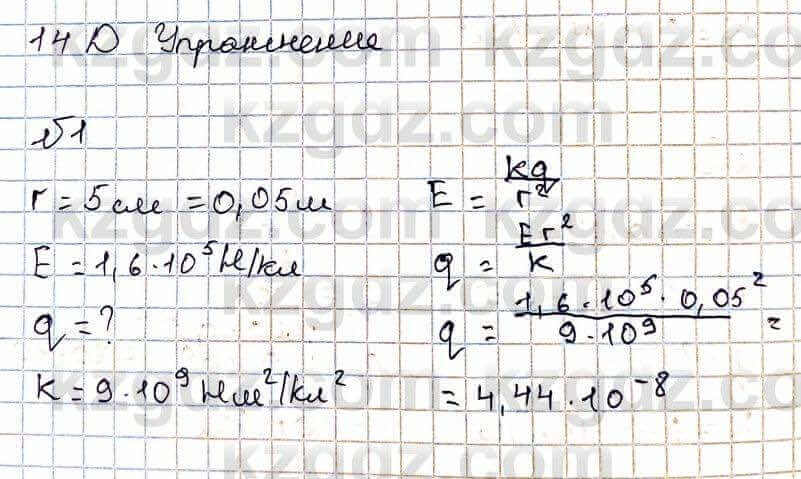 14 D Упражнение
№1
r = 5 см = 0,05 м
E = 1,6 · 10⁵ Н/кл
q = ?
K = 9 · 10⁹ Нм²/кл²
E = kq/r²
q = Er²/k
q = 1,6 · 10⁵ · 0,05²/9 · 10⁹ =
= 4,44 · 10⁻⁸
kzgdz.com